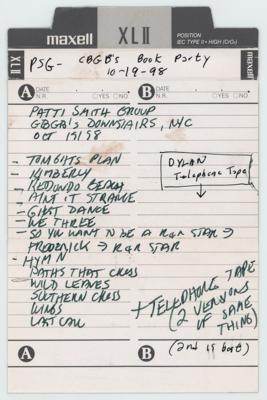 maxell XL II
POSITION
IEC TYPE II • HIGH (CrO₂)
maxell
XL II
PSG- CBGB's Book Party
10-19-98
A DATE
N.R. YES NO
B DATE
N.R. YES NO
PATTI SMITH GROUP
CBGB'S DOWNSTAIRS, NYC
OCT 19/98
- TOM BITS PLAN
- KIMBERLY
- REDONDO BEACH
- AIN'T IT STRANGE
- GHOST DANCE
- WE THREE
- SO YOU WANT TO BE A R&R STAR →
FREDERICK → R&R STAR
- HYMN
PATHS THAT CROSS
WILD LEAVES
SOUTHERN CROSS
WINGS
LAST CALL
DYLAN
Telephone Tape
+ TELEPHONE TAPE
(2 VERSIONS
OF SAME
THING)
(2nd is best)
A
B